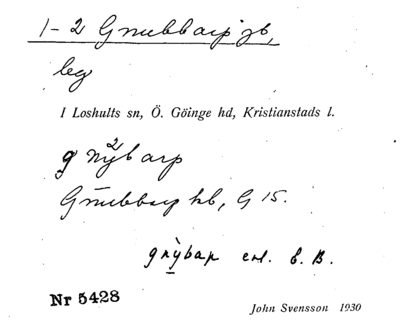 1-2 Gnubbarp gb,
leg
I Loshults sn, Ö. Göinge hd, Kristianstads l.
Gnubbarp hb, G 15.
enl. b. B.
Nr 5428
John Svensson 1930